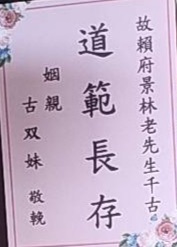 故賴府景林老先生千古
道範長存
姻親
古双妹 敬輓